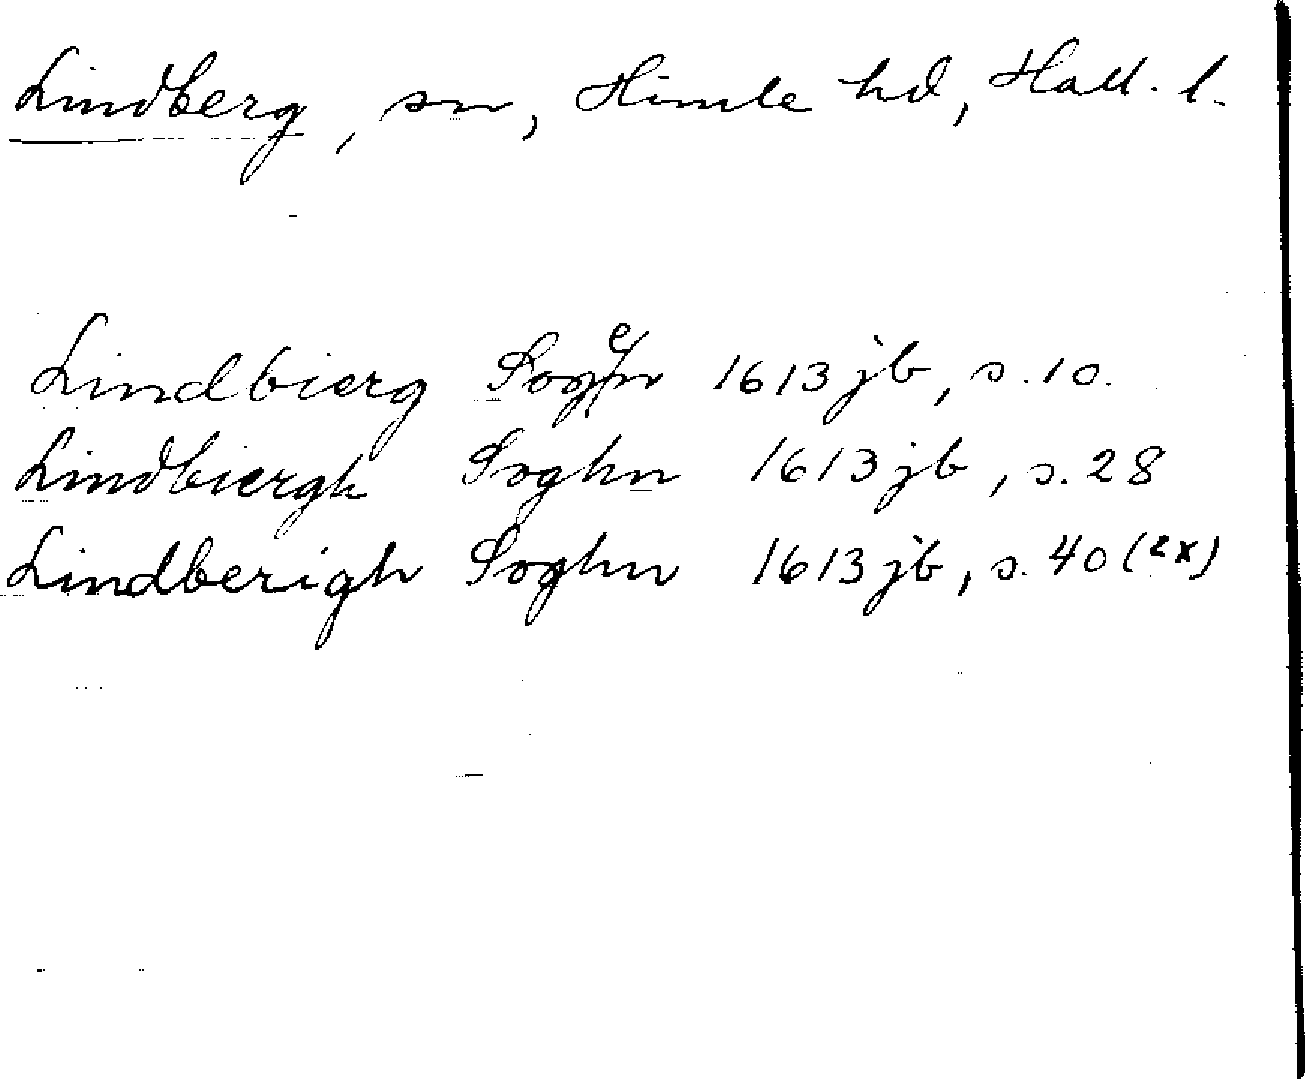 Lindberg, sn, Himle hd, Hall. l.
Lindbierg Sogen 1613 jb, s. 10.
Lindbiergh Soghn 1613 jb, s. 28
Lindberigh Soghn 1613 jb, s. 40 (2x)